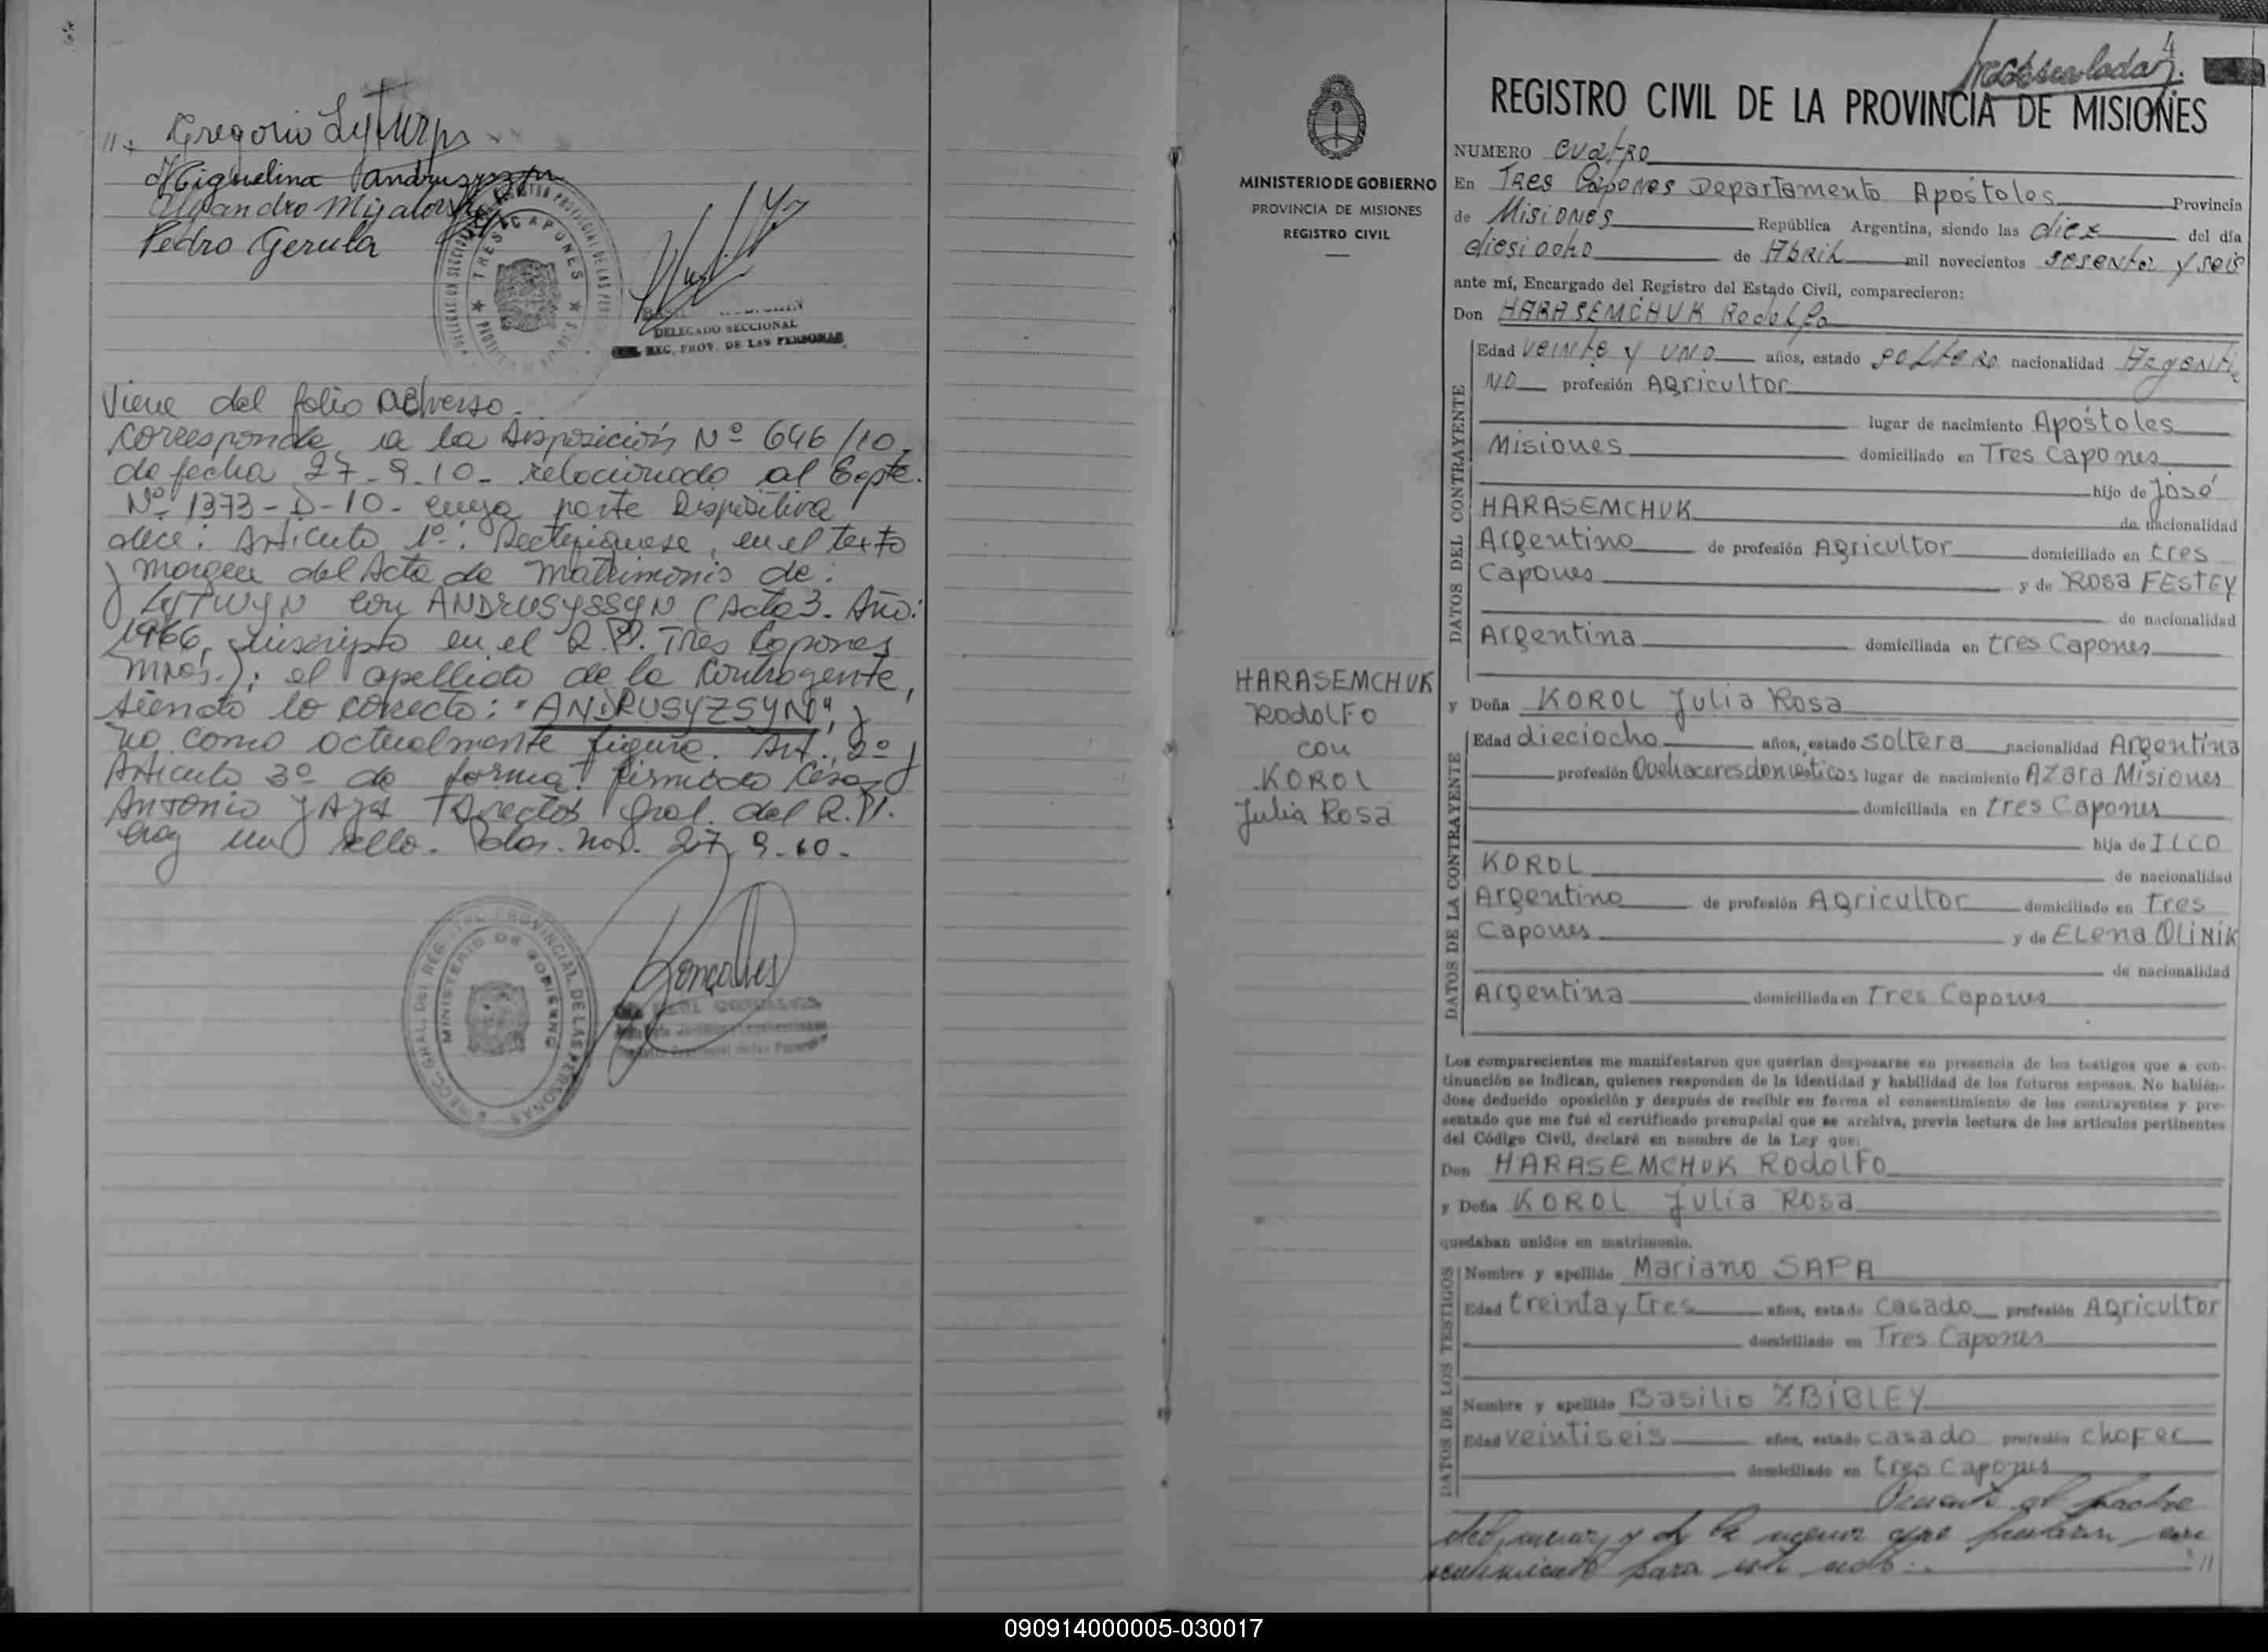 Gregorio Lytwyn
Miguelina Andrusyzsyn
Pedro Gerula
TRES CAPONES
DELEGADO SECCIONAL
REG. PROV. DE LAS PERSONAS
Viene del folio adverso.
Corresponde a la Disposición Nº 646/10,
de fecha 27-9-10- relacionado al Expte.
Nº 1373-D-10- cuya parte Dispositiva
dice: Artículo 1º: Rectifiquese, en el texto
y margen del Acta de matrimonio de:
LYTWYN con ANDRUSYSSYN (Acta 3. Año:
1966, inscripto en el R.P. Tres Capones
Mnes.); el apellido de la contrayente,
siendo lo correcto: "ANDRUSYZSYN", y
no como actualmente figura. Art. 2º y
Artículo 3º de forma. firmado César
Antonio Director Gral. del R.P.
hay un sello. Pdas. 27-9-10-
MINISTERIO DE GOBIERNO
Goncalves
MINISTERIO DE GOBIERNO
PROVINCIA DE MISIONES
REGISTRO CIVIL
HARASEMCHUK
Rodolfo
con
KOROL
Julia Rosa
4
REGISTRO CIVIL DE LA PROVINCIA DE MISIONES
NUMERO cuatro
En Tres Capones Departamento Apóstoles Provincia
de Misiones República Argentina, siendo las diez del día
diesiocho de Abril mil novecientos sesenta y seis
ante mí, Encargado del Registro del Estado Civil, comparecieron:
Don HARASEMCHUK Rodolfo
DATOS DEL CONTRAYENTE
Edad veinte y uno años, estado soltero nacionalidad Argenti
no profesión Agricultor
lugar de nacimiento Apóstoles
Misiones domiciliado en Tres Capones
hijo de José
HARASEMCHUK de nacionalidad
Argentino de profesión Agricultor domiciliado en tres
Capones y de Rosa FESTEY
de nacionalidad
Argentina domiciliada en tres Capones
y Doña KOROL Julia Rosa
DATOS DE LA CONTRAYENTE
Edad dieciocho años, estado soltera nacionalidad Argentina
profesión Quehaceres domésticos lugar de nacimiento AZara Misiones
domiciliada en tres Capones
hija de ILCO
KOROL de nacionalidad
Argentino de profesión Agricultor domiciliado en Tres
Capones y de ELena OLINIK
de nacionalidad
Argentina domiciliada en Tres Capones
Los comparecientes me manifestaron que querían desposarse en presencia de los testigos que a con-
tinuación se indican, quienes responden de la identidad y habilidad de los futuros esposos. No habién-
dose deducido oposición y después de recibir en forma el consentimiento de los contrayentes y pre-
sentado que me fué el certificado prenupcial que se archiva, previa lectura de los artículos pertinentes
del Código Civil, declaré en nombre de la Ley que:
Don HARASEMCHUK Rodolfo
y Doña KOROL Julia Rosa
quedaban unidos en matrimonio.
DATOS DE LOS TESTIGOS
Nombre y apellido Mariano SAPA
Edad treinta y tres años, estado casado profesión Agricultor
domiciliado en Tres Capones
Nombre y apellido Basilio ZBIBLEY
Edad veintiseis años, estado casado profesión chofer
domiciliado en tres Capones
Presente el padre
del menor y de la menor que prestaron con
sentimiento para este acto.
090914000005-030017